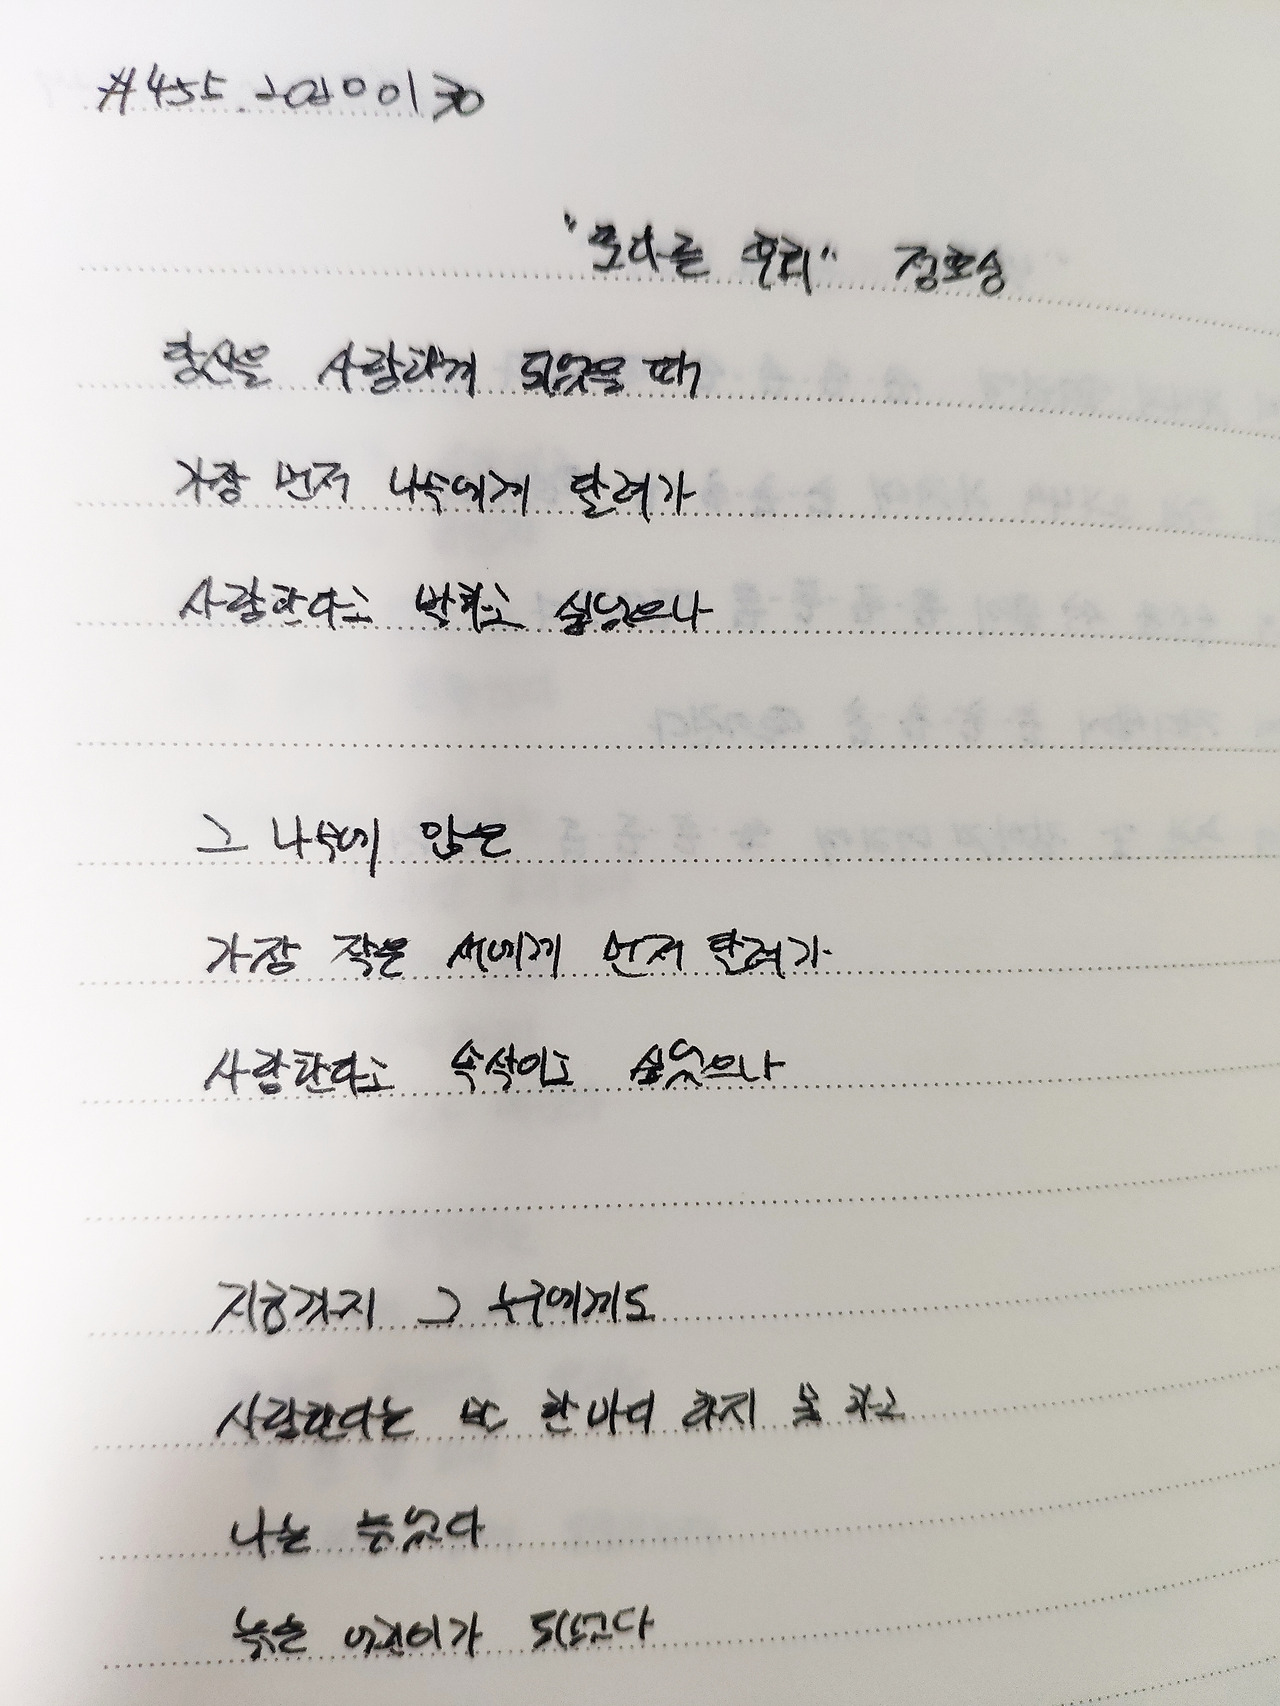 #455. 20200130
"또다른 후회" 정호승
당신을 사랑하게 되었을 때
가장 먼저 나무에게 달려가
사랑한다고 말하고 싶었으나
그 나무에 앉은
가장 작은 새에게 먼저 달려가
사랑한다고 속삭이고 싶었으나
지금까지 그 누구에게도
사랑한다는 말 한마디 하지 못 하고
나는 늙었다
늙은 어린이가 되었다